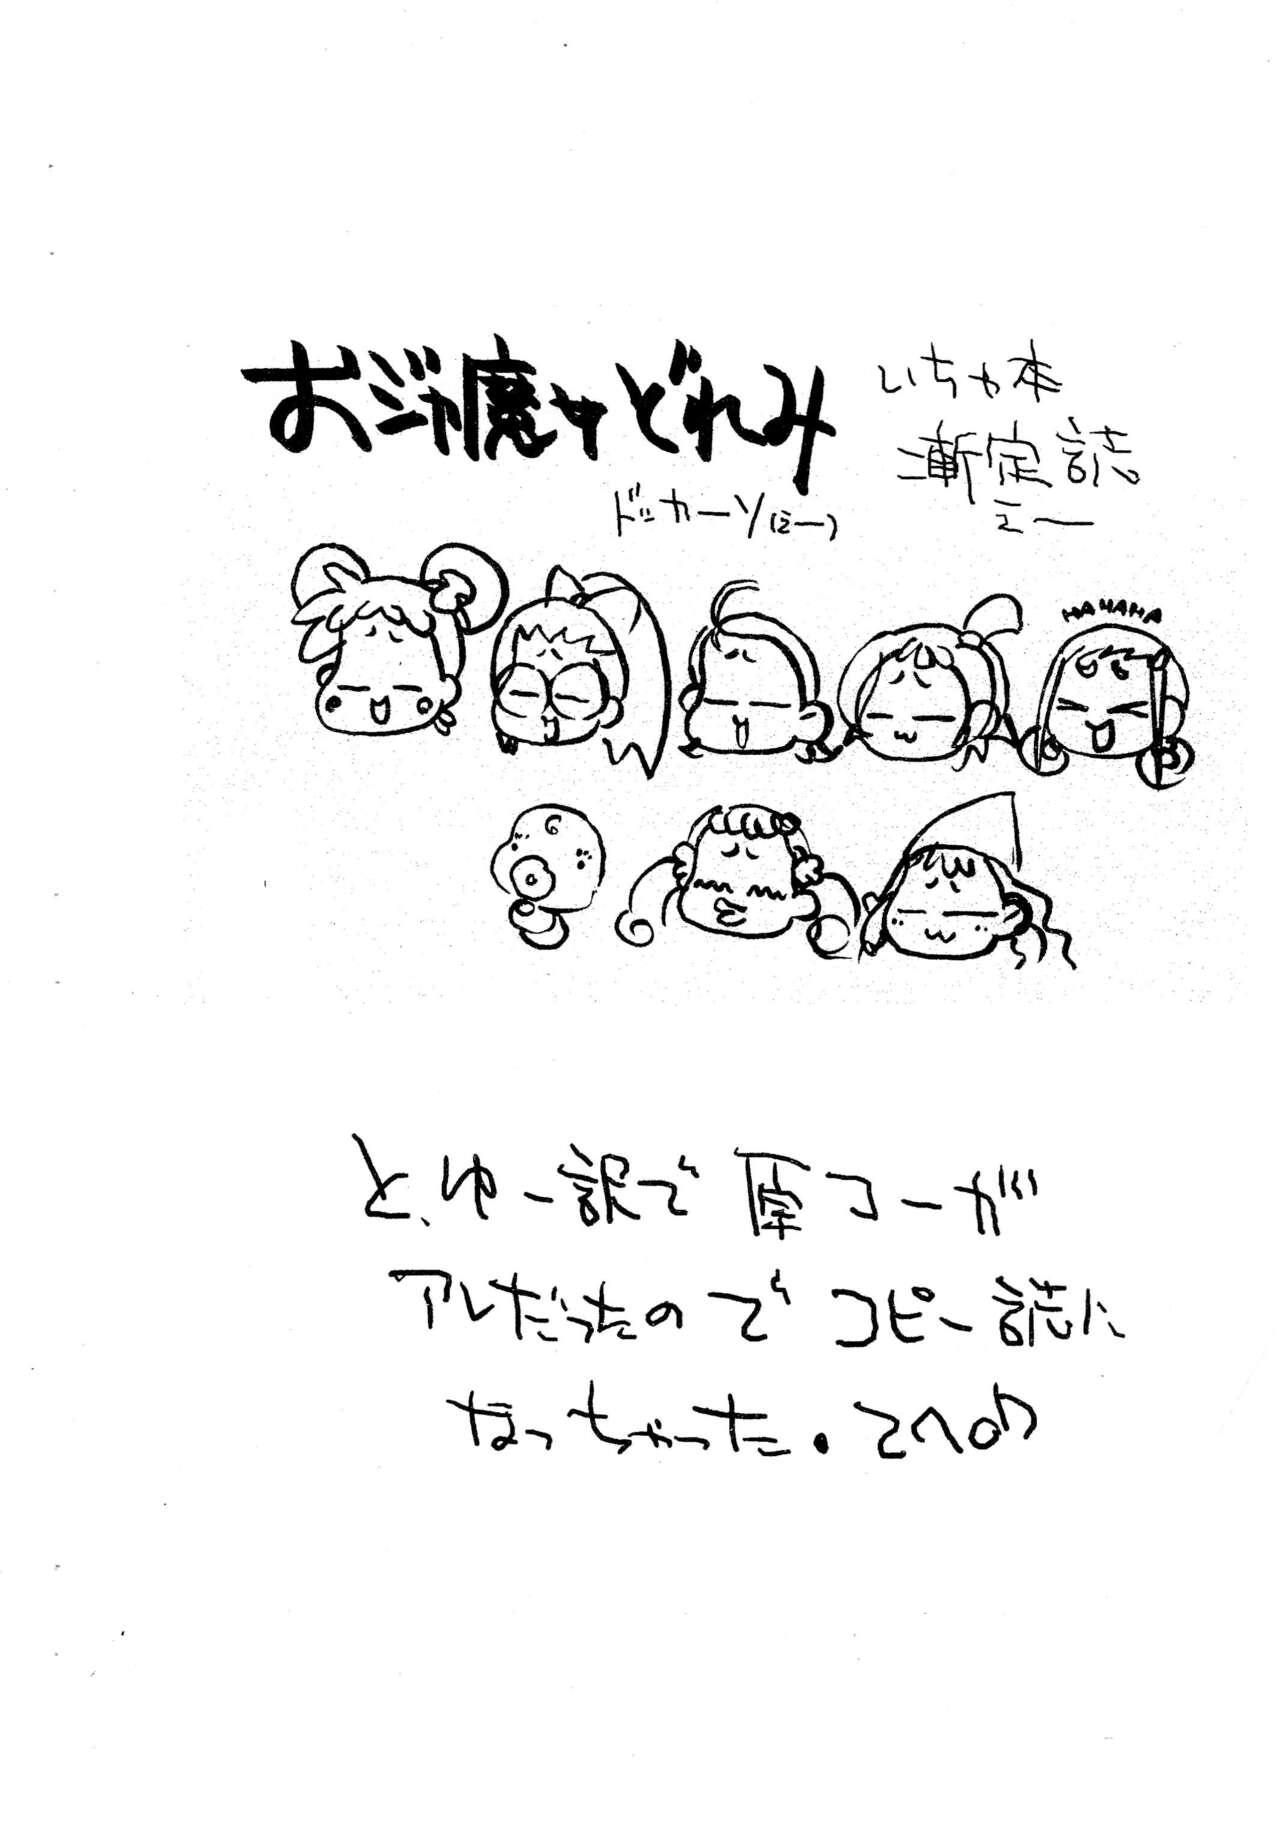 おジャ魔女どれみ
ドッカーソ(えー)
いちゃ本
漸定誌。
えー
HAHAHA
と、ゆー訳で原コーが
アレだったのでコピー誌に
なっちゃった。てへ♪